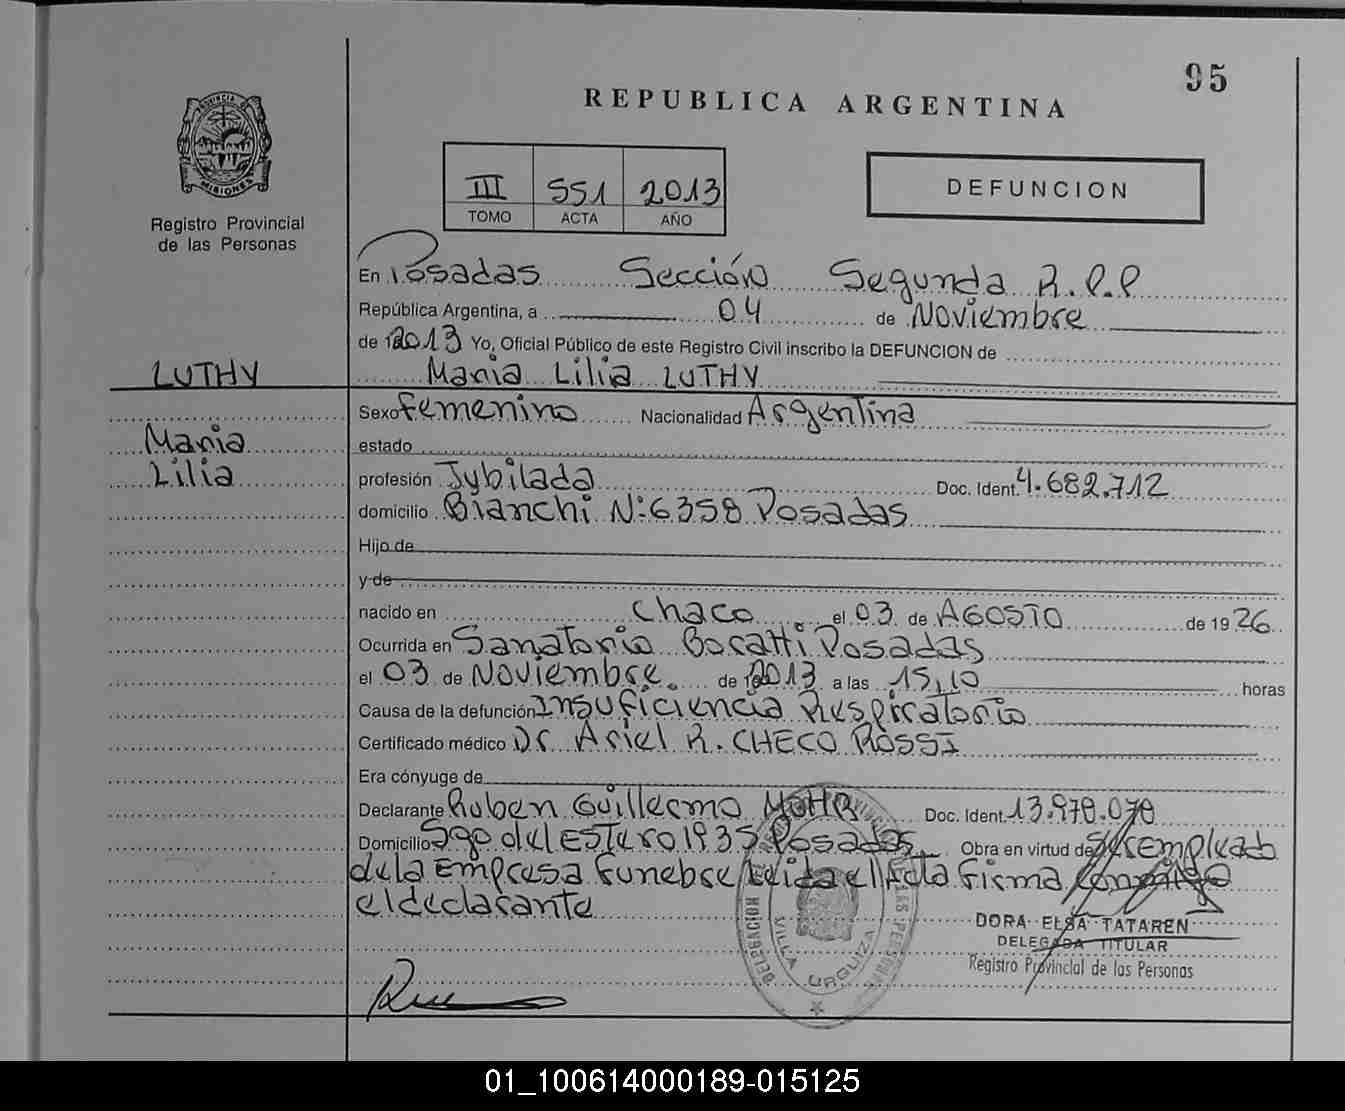 95
REPUBLICA ARGENTINA
PROVINCIA DE
MISIONES
Registro Provincial
de las Personas
III 551 2013
TOMO ACTA AÑO
DEFUNCION
En Posadas Sección Segunda R.P.P
República Argentina, a 04 de Noviembre
de 2013 Yo, Oficial Público de este Registro Civil inscribo la DEFUNCION de
LUTHY
Maria Lilia LUTHY
Sexo femenino Nacionalidad Argentina
Maria
estado
Lilia
profesión Jubilada Doc. Ident. 4.682.712
domicilio Bianchi N: 6358 Posadas
Hijo de
y de
nacido en Chaco el 03 de AGOSTO de 1926
Ocurrida en Sanatorio Boratti Posadas
el 03 de Noviembre de 2013 a las 15,10 horas
Causa de la defunción Insuficiencia Respiratoria
Certificado médico Dr Ariel R. CHECO ROSSI
Era cónyuge de
Declarante Ruben Guillermo Doc. Ident. 13.970.070
Domicilio Sgo del ESTERO 1935 Posadas Obra en virtud de ser empleado
de la Empresa Funebre Leida el Acta Firma conmigo
el declarante
DELEGACION
VILLA URQUIZA
DORA ELSA TATAREN
DELEGADA TITULAR
Registro Provincial de las Personas
01_100614000189-015125